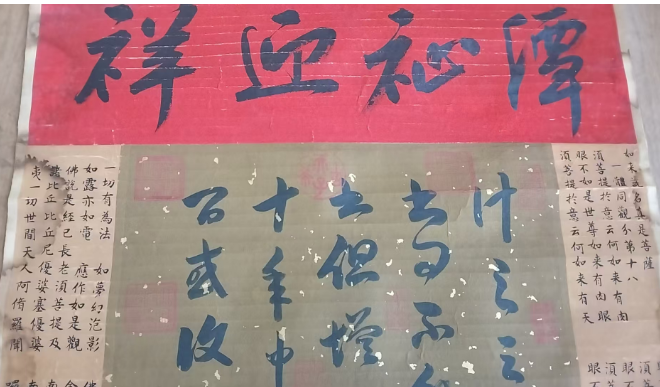 潭祉迎祥
如来說名真是菩薩
一體同觀分第十八
須菩提於意云何如来有肉
眼不如是世尊如来有肉眼
須菩提於意云何如来有天
什之三
不
但增
十年中
百或收
一切有為法 如夢幻泡影
如露亦如電 應作如是觀
佛說是經已長老須菩提及
諸比丘比丘尼優婆塞優婆
夷一切世間天人阿脩羅聞